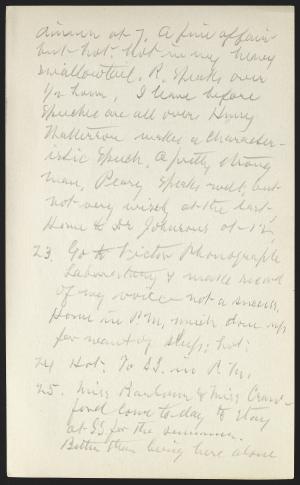 dinner at 7. A fine affair
but hot. Hot in my heavy
swallowtail. R. speaks over
½ hour. I leave before
speeches are all over. Henry
Watterson makes a character-
istic speech. A pretty strong
man, Peary speaks well, but
not very wisely at the last.
Home to Dr Johnsons at 12.
23. Go to Victor Phonograph
Laboratory & make record
of my voice - not a success.
Home in P.M. much done up
for want of sleep; hot.
24 Hot. To SS. in P.M.
25. Miss Barbour & Miss Craw-
ford come to-day to stay
at SS for the summer.
Better than being here alone